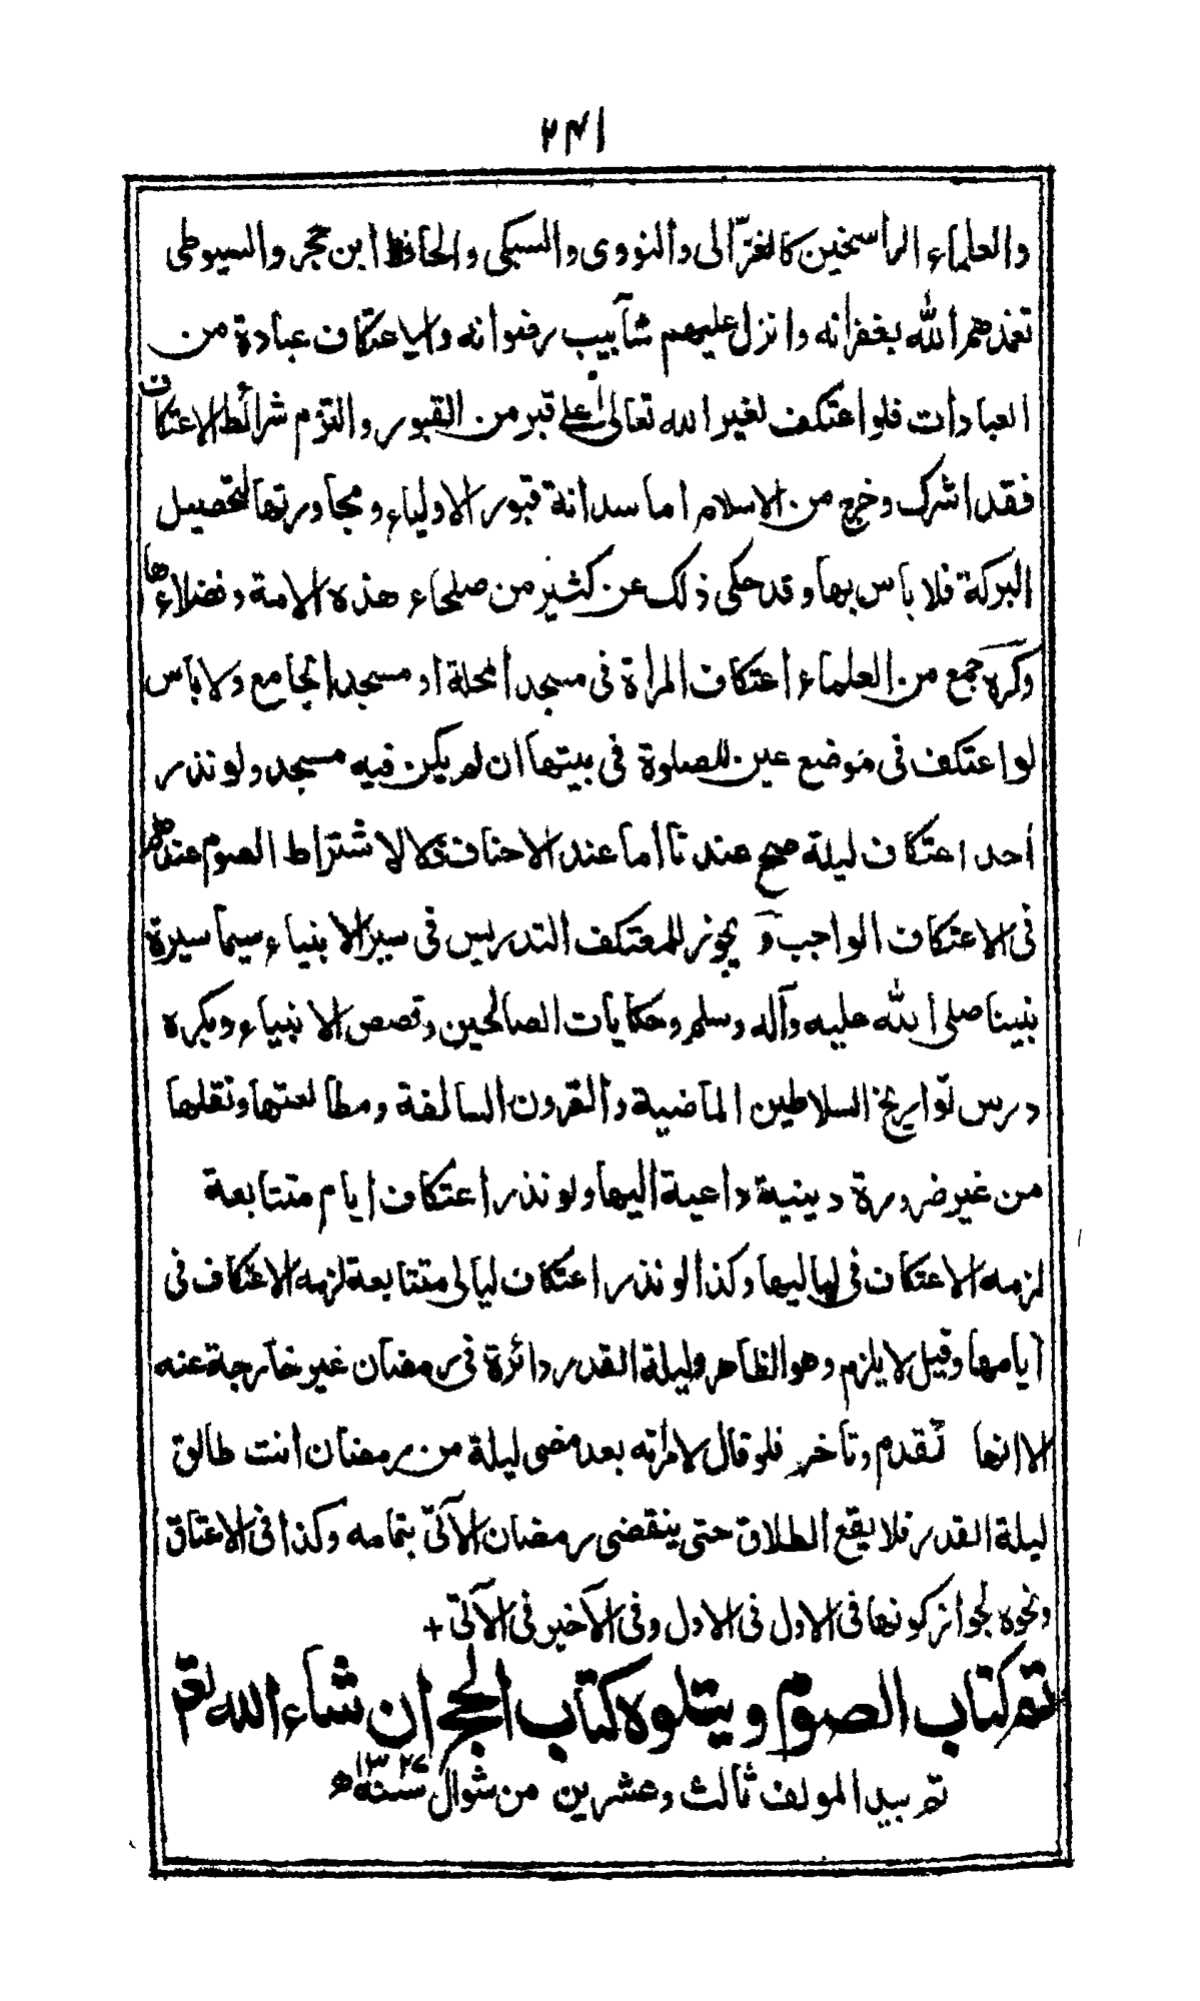 ٢٤١
والعلماء الراسخين كالغزّالى والنووى والسبكى والحافظ ابن حجر والسيوطى
تغمدهم الله بغفرانه وانزل عليهم شآبيب رضوانه والاعتكاف عبادة من
العبادات فلو اعتكف لغير الله تعالى على قبر من القبور والتزم شرائط الاعتكاف
فقد اشرك وخرج من الاسلام اما سدانة قبور الاولياء ومجاورتها لتحصيل
البركة فلا باس بها وقد حكى ذلك عن كثير من صلحاء هذه الامة وفضلاءها
وكره جمع من العلماء اعتكاف المراة فى مسجد المحلة او مسجد الجامع ولا باس
لو اعتكف فى موضع عين للصلوة فى بيتها ان لم يكن فيه مسجد ولو نذر
احد اعتكاف ليلة صح عندنا اما عند الاحناف فلا لاشتراط الصوم عندهم
فى الاعتكاف الواجب و يجوز للمعتكف التدريس فى سير الانبياء سيما سيرة
نبينا صلى الله عليه وآله وسلم وحكايات الصالحين وقصص الانبياء ويكره
درس تواريخ السلاطين الماضية والقرون السالفة ومطالعتها ونقلها
من غير ضرورة دينية داعية اليها ولو نذر اعتكاف ايام متتابعة
لزمه الاعتكاف فى لياليها وكذا لو نذر اعتكاف ليالى متتابعة لزمه الاعتكاف فى
ايامها وقيل لا يلزم وهو الظاهر وليلة القدر دائرة فى رمضان غير خارجة عنه
الا انها تقدم وتاخر فلو قال لامراته بعد مضى ليلة من رمضان انت طالق
ليلة القدر فلا يقع الطلاق حتى ينقضى رمضان الآتى بتمامه وكذا فى الاعتاق
ونحوه لجواز كونها فى الاول فى الاول وفى الآخير فى الآتى +
تم كتاب الصوم ويتلوه كتاب الحج ان شاء الله تعم
تم بيد المولف ثالث وعشرين من شوال سنة ١٣٢٧ھ